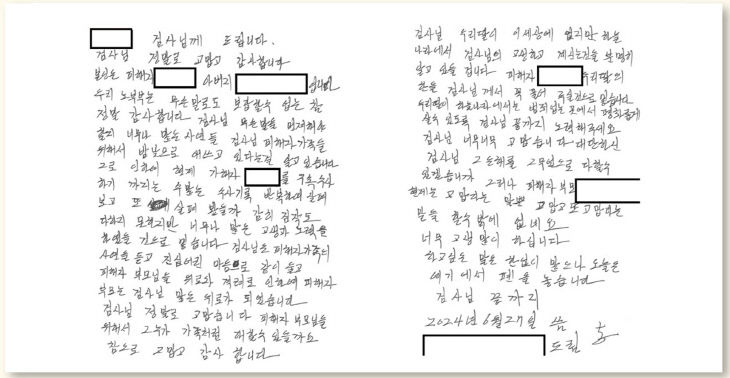 검사님께 드립니다.
검사님 정말로 고맙고 감사합니다
본인은 피해자 아버지 입니다
우리 노부부는 무슨 말로도 보답할수 없는 참
정말 감사합니다 검사님 무슨말을 먼저해야
할지 너무나 많은 사연들 검사님 피해자가족을
위해서 밤낮으로 애쓰고 있다는걸 알고 있습니다
그로 인하여 현재 가해자 를 구속수사
하기 까지는 수많은 수사기록 반복하여 살펴
보고 또 살펴 봤을까 감히 짐작도
다하지 못하지만 너무나 많은 고생과 노력을
하였을 것으로 믿습니다 검사님은 피해자가족의
사연을 듣고 진심어린 마음으로 같이 슬고
피해자 부모님을 위로와 격려로 인하여 피해자
부모는 검사님 많은 위로가 되었습니다
검사님 정말로 고맙습니다 피해자 부모님을
위해서 그누가 가족처럼 대할수 있을까요
참으로 고맙고 감사 합니다
검사님 우리딸이 이세상에 없지만 하늘
나라에서 검사님의 고생하고 계시는것을 분명히
알고 있을 겁니다 피해자 우리딸의
한을 검사님께서 꼭 풀어 주실것으로 믿습니다
우리딸이 하늘나라에서는 범죄없는 곳에서 평화롭게
살수 있도록 검사님 끝까지 노력해주세요
검사님 너무너무 고맙습니다 대단하신
검사님 그 은혜를 그무엇으로 다할수
있겠습니까 그러나 피해자 부모
현재는 고맙다는 말뿐 고맙고 또 고맙다는
말을 할수 밖에 없네요
너무 고생 많이 하십니다
하고싶은 말은 한없이 많으나 오늘은
여기에서 펜을 놓습니다
검사님 끝까지
2024년 6월 27일 씀
드림